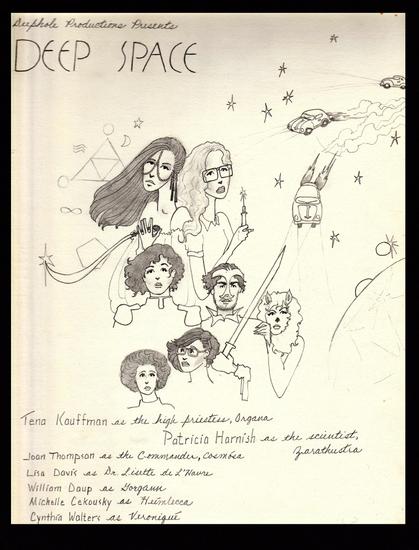 Deephole Productions Presents
DEEP SPACE
Tena Kauffman as the high priestess, Organa
Patricia Harnish as the scientist,
Zarathustra
Joan Thompson as the Commander, Cosméa
Lisa Davis as Dr. Lisette de L'Havre
William Daup as Gorgann
Michelle Cekousky as Heimlecca
Cynthia Walters as Veroniqué